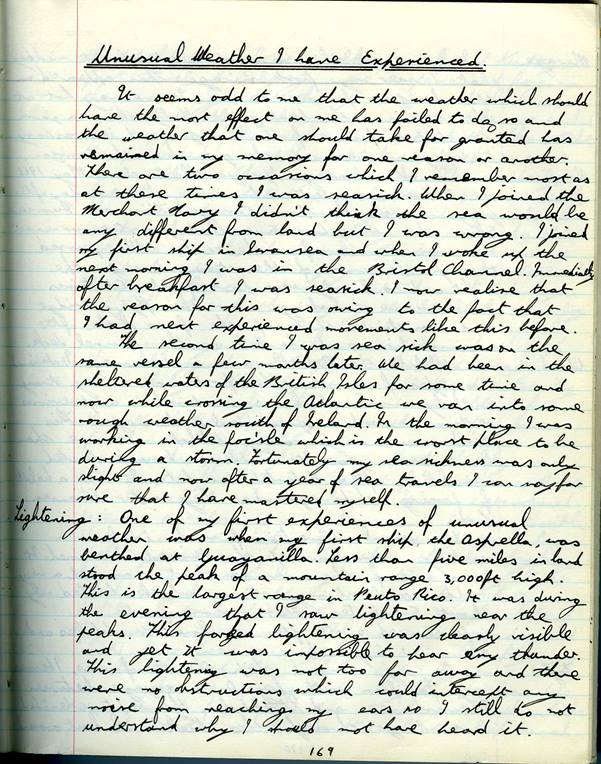 Unusual Weather I have Experienced.
It seems odd to me that the weather which should
have the most effect on me has failed to do so and
the weather that one should take for granted has
remained in my memory for one reason or another.
There are two occasions which I remember most as
at these times I was seasick. When I joined the
Merchant Navy I didn't think the sea would be
any different from land but I was wrong. I joined
my first ship in Swansea and when I woke up the
next morning I was in the Bristol Channel. Immediately
after breakfast I was seasick. I now realise that
the reason for this was owing to the fact that
I had next experienced movements like this before.
The second time I was sea sick was on the
same vessel a few months later. We had been in the
sheltered waters of the British Isles for some time and
now while crossing the Atlantic we ran into some
rough weather south of Ireland. In the morning I was
working in the focisle which is the worst place to be
during a storm. Fortunately my sea sickness was only
slight and now after a year of sea travels I can say for
sure that I have mastered myself.
Lightening: One of my first experiences of unusual
weather was when my first ship, the Asprella, was
berthed at Guayanilla. Less than five miles inland
stood the peak of a mountain range 3,000ft high.
This is the largest range in Peuto Rico. It was during
the evening that I saw lightening near the
peaks. This forged lightening was clearly visible
and yet it was impossible to hear any thunder.
This lightening was not too far away and there
were no obstructions which could intercept any
noise from reaching my ears so I still do not
understand why I should not have heard it.
169